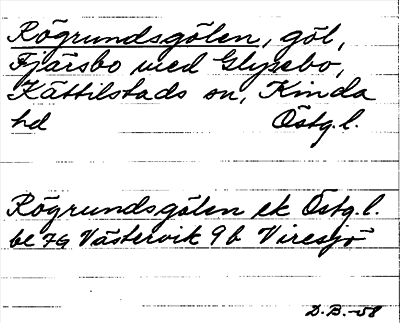 Rögrundsgölen, göl,
Fjärsbo med Glysebo,
Kättilstads sn, Kinda
hd Östg.l.
Rögrundsgölen ek Östg.l.
bl 7G Västervik 9b Viresjö
D.B.-58